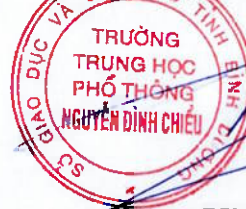 SỞ GIAO DỤC VÀ
TỈNH BÌNH DƯƠNG
TRƯỜNG
TRUNG HỌC
PHỔ THÔNG
NGUYỄN ĐÌNH CHIỂU